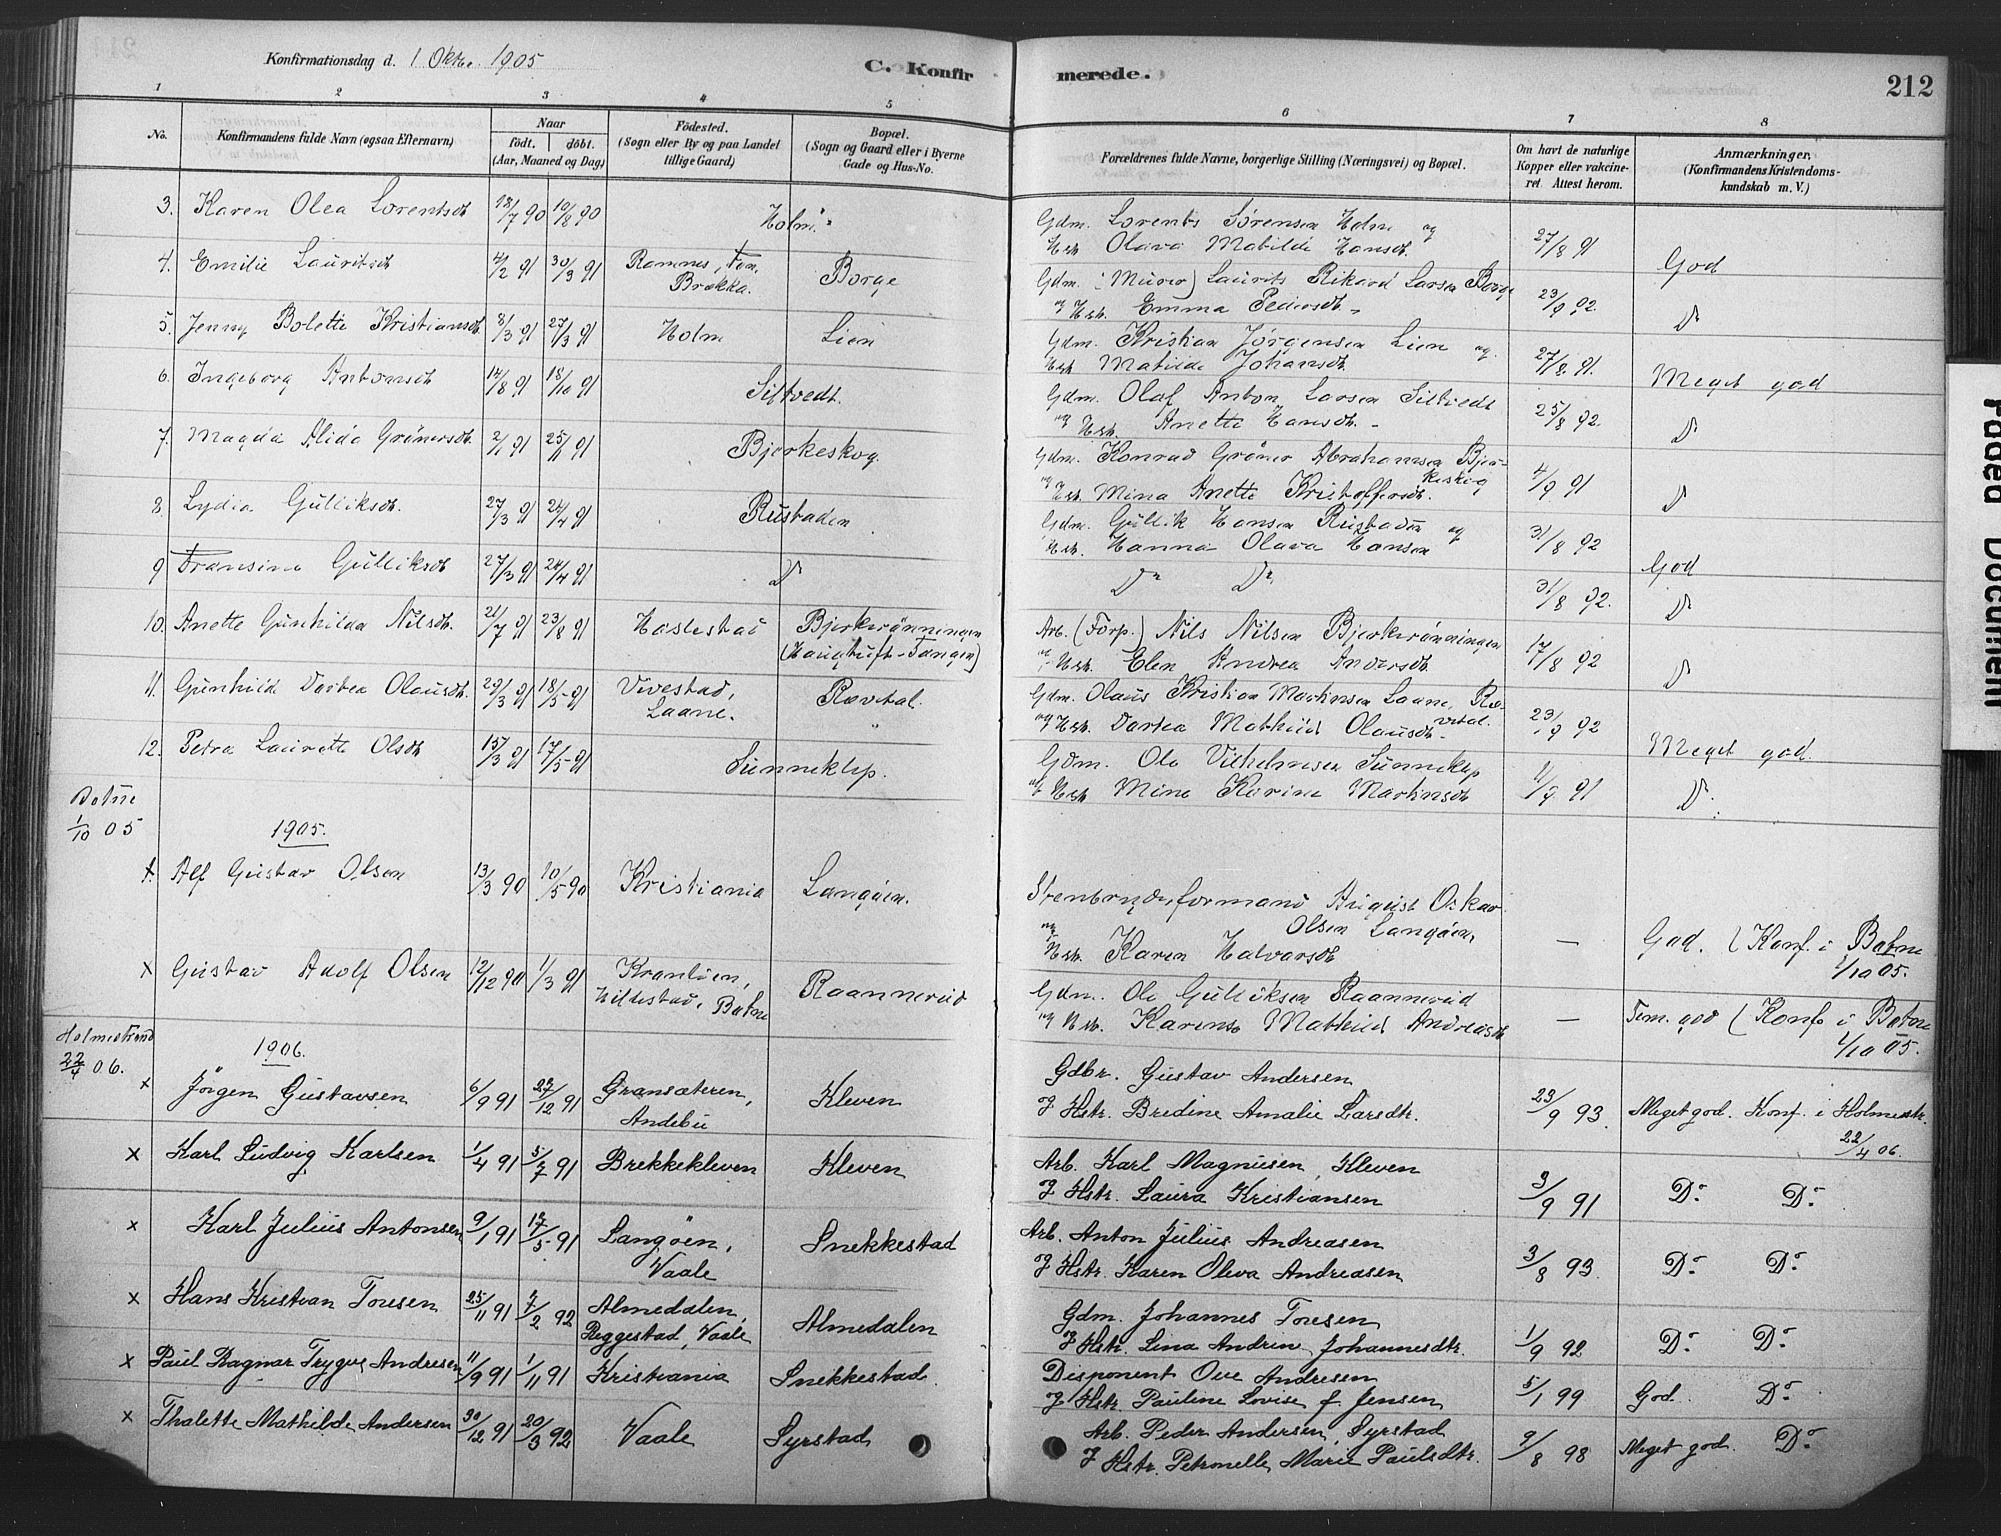 Konfirmationsdag d. 1 Oktbr. 1905
C. Konfirmerede.
212
1 2 3 4 5 6 7 8
No.
Konfirmandens fulde Navn (ogsaa Efternavn)
Naar
födt. döbt.
(Aar, Maaned og Dag)
Födested.
(Sogn eller By og paa Landet
tillige Gaard)
Bopæl.
(Sogn og Gaard eller i Byerne
Gade og Hus-No.
Forældrenes fulde Navne, borgerlige Stilling (Næringsvei) og Bopæl.
Om havt de naturlige
Kopper eller vakcine-
ret. Attest herom.
Anmærkninger,
(Konfirmandens Kristendoms-
kundskab m. V.)
3. Karen Olea Lorentsdt 18/7 90 10/8 90 Holm. Gdm. Lorents Sörensen Holm og
Hst. Olava Matilde Hansdt. 27/8 91 God
4. Emilie Lauritsdt 4/2 91 30/3 91 Ramnes, Brekka. Borge Gdm. (Murer) Laurits Rikard Larsen Borge
og Hst. Emma Pedersdt. 23/9 92. Do
5. Jenny Bolette Kristiansdt 8/3 91 27/3 91 Holm Lien Gdm. Kristian Jörgensen Lien og
Hst. Matilde Johansdt. 27/8 91. Meget god
6. Ingeborg Antonsdt 14/8 91 18/10 91 Siltvedt. Gdm. Olaf Anton Larsen Siltvedt
og Hst. Anette Hansdt. 25/8 92. Do
7. Magda Alida Grönersdt. 91 91 Bjerkeskog. Gdm. Konrad Gröner Abrahamsen Bjerkeskog
og Hst. Mina Anette Kristoffersdt. 4/9 91 Do
8. Lydia Gulliksdt. 27/3 91 24/4 91 Rustaden Gdm. Gullik Hansen Rustaden og
Hst. Hanna Olava Hansen 31/8 92 God
9 Fransine Gulliksdt 27/3 91 24/4 91 Do Do Do 31/8 92. Do
10. Anette Gunhilda Nilsdt. 21/7 91 23/8 91 Hostestad Bjerkerönningen
(Haugtuft-Tangen) Arb. (Forp.) Nils Nilsen Bjerkerönningen
og Hst. Elen Andrea Andersdt 17/8 92 Do
11. Gunhild Dortea Olausdt. 29/3 91 18/5 91 Vivestad, Laane. Rævetal. Gdm. Olaus Kristian Martinsen Laane, Rævetal.
og Hst. Dortea Mathild Olausdt. 23/9 92 Meget god.
12. Petra Laurette Olsdt 15/3 91 17/5 91 Sunneklep. Gdm. Ole Vilhelmsen Sunneklep
og Hst. Mina Karine Martinsdt 11/9 91 Do.
Botne
1/10 05 1905.
x Alf Gustav Olsen 13/3 90 10/5 90 Kristiania Langöen. Stenbryderformand August Oskar
Olsen Langöen,
og Hst. Karen Halvorsdt — God. (Konf. i Botne
1/10 05.
x Gustav Adolf Olsen 12/12 90 1/3 91 Hillestad, Botne Raannerud Gdm. Ole Gulliksen Raannerud
og Hst. Karense Mathild Andreasdt — Tem. god (Konf. i Botne
1/10 05.
Holmestrand
22/4 06. 1906.
x Jörgen Gustavsen 6/9 91 27/12 91 Gransæteren, Andebu Kleven Gdbr. Gustav Andersen
& Hstr. Bredine Amalie Larsdtr. 23/9 93. Meget god. Konf. i Holmestr.
22/4 06.
x Karl Ludvig Karlsen 1/4 91 5/7 91 Brekkekleven Kleven Arb. Karl Magnusen, Kleven
& Hstr. Laura Kristiansen 3/9 91 Do. Do.
x Karl Julius Antonsen 9/1 91 17/5 91 Langöen, Vaale Snekkestad Arb. Anton Julius Andreasen
og Hstr. Karen Oleva Andreasen 3/8 93. Do. Do.
x Hans Kristian Toresen 25/11 91 7/2 92 Almedalen, Reggestad, Vaale Almedalen Gdm. Johannes Toresen
& Hstr. Lina Andrine Johannesdtr. 1/9 92 Do. Do.
x Paul Ragnar Trygve Andresen 11/9 91 1/11 91 Kristiania Snekkestad. Disponent Ove Andresen
& Hstr. Pauline Lovise f. Jensen 5/1 99 God. Do.
x Thalette Mathilde Andersen 30/12 91 20/3 92 Vaale Syrstad Arb. Peder Andersen, Syrstad
& Hstr. Petronelle Marie Paulsdtr. 9/8 98 Meget god. Do.
Faded Document